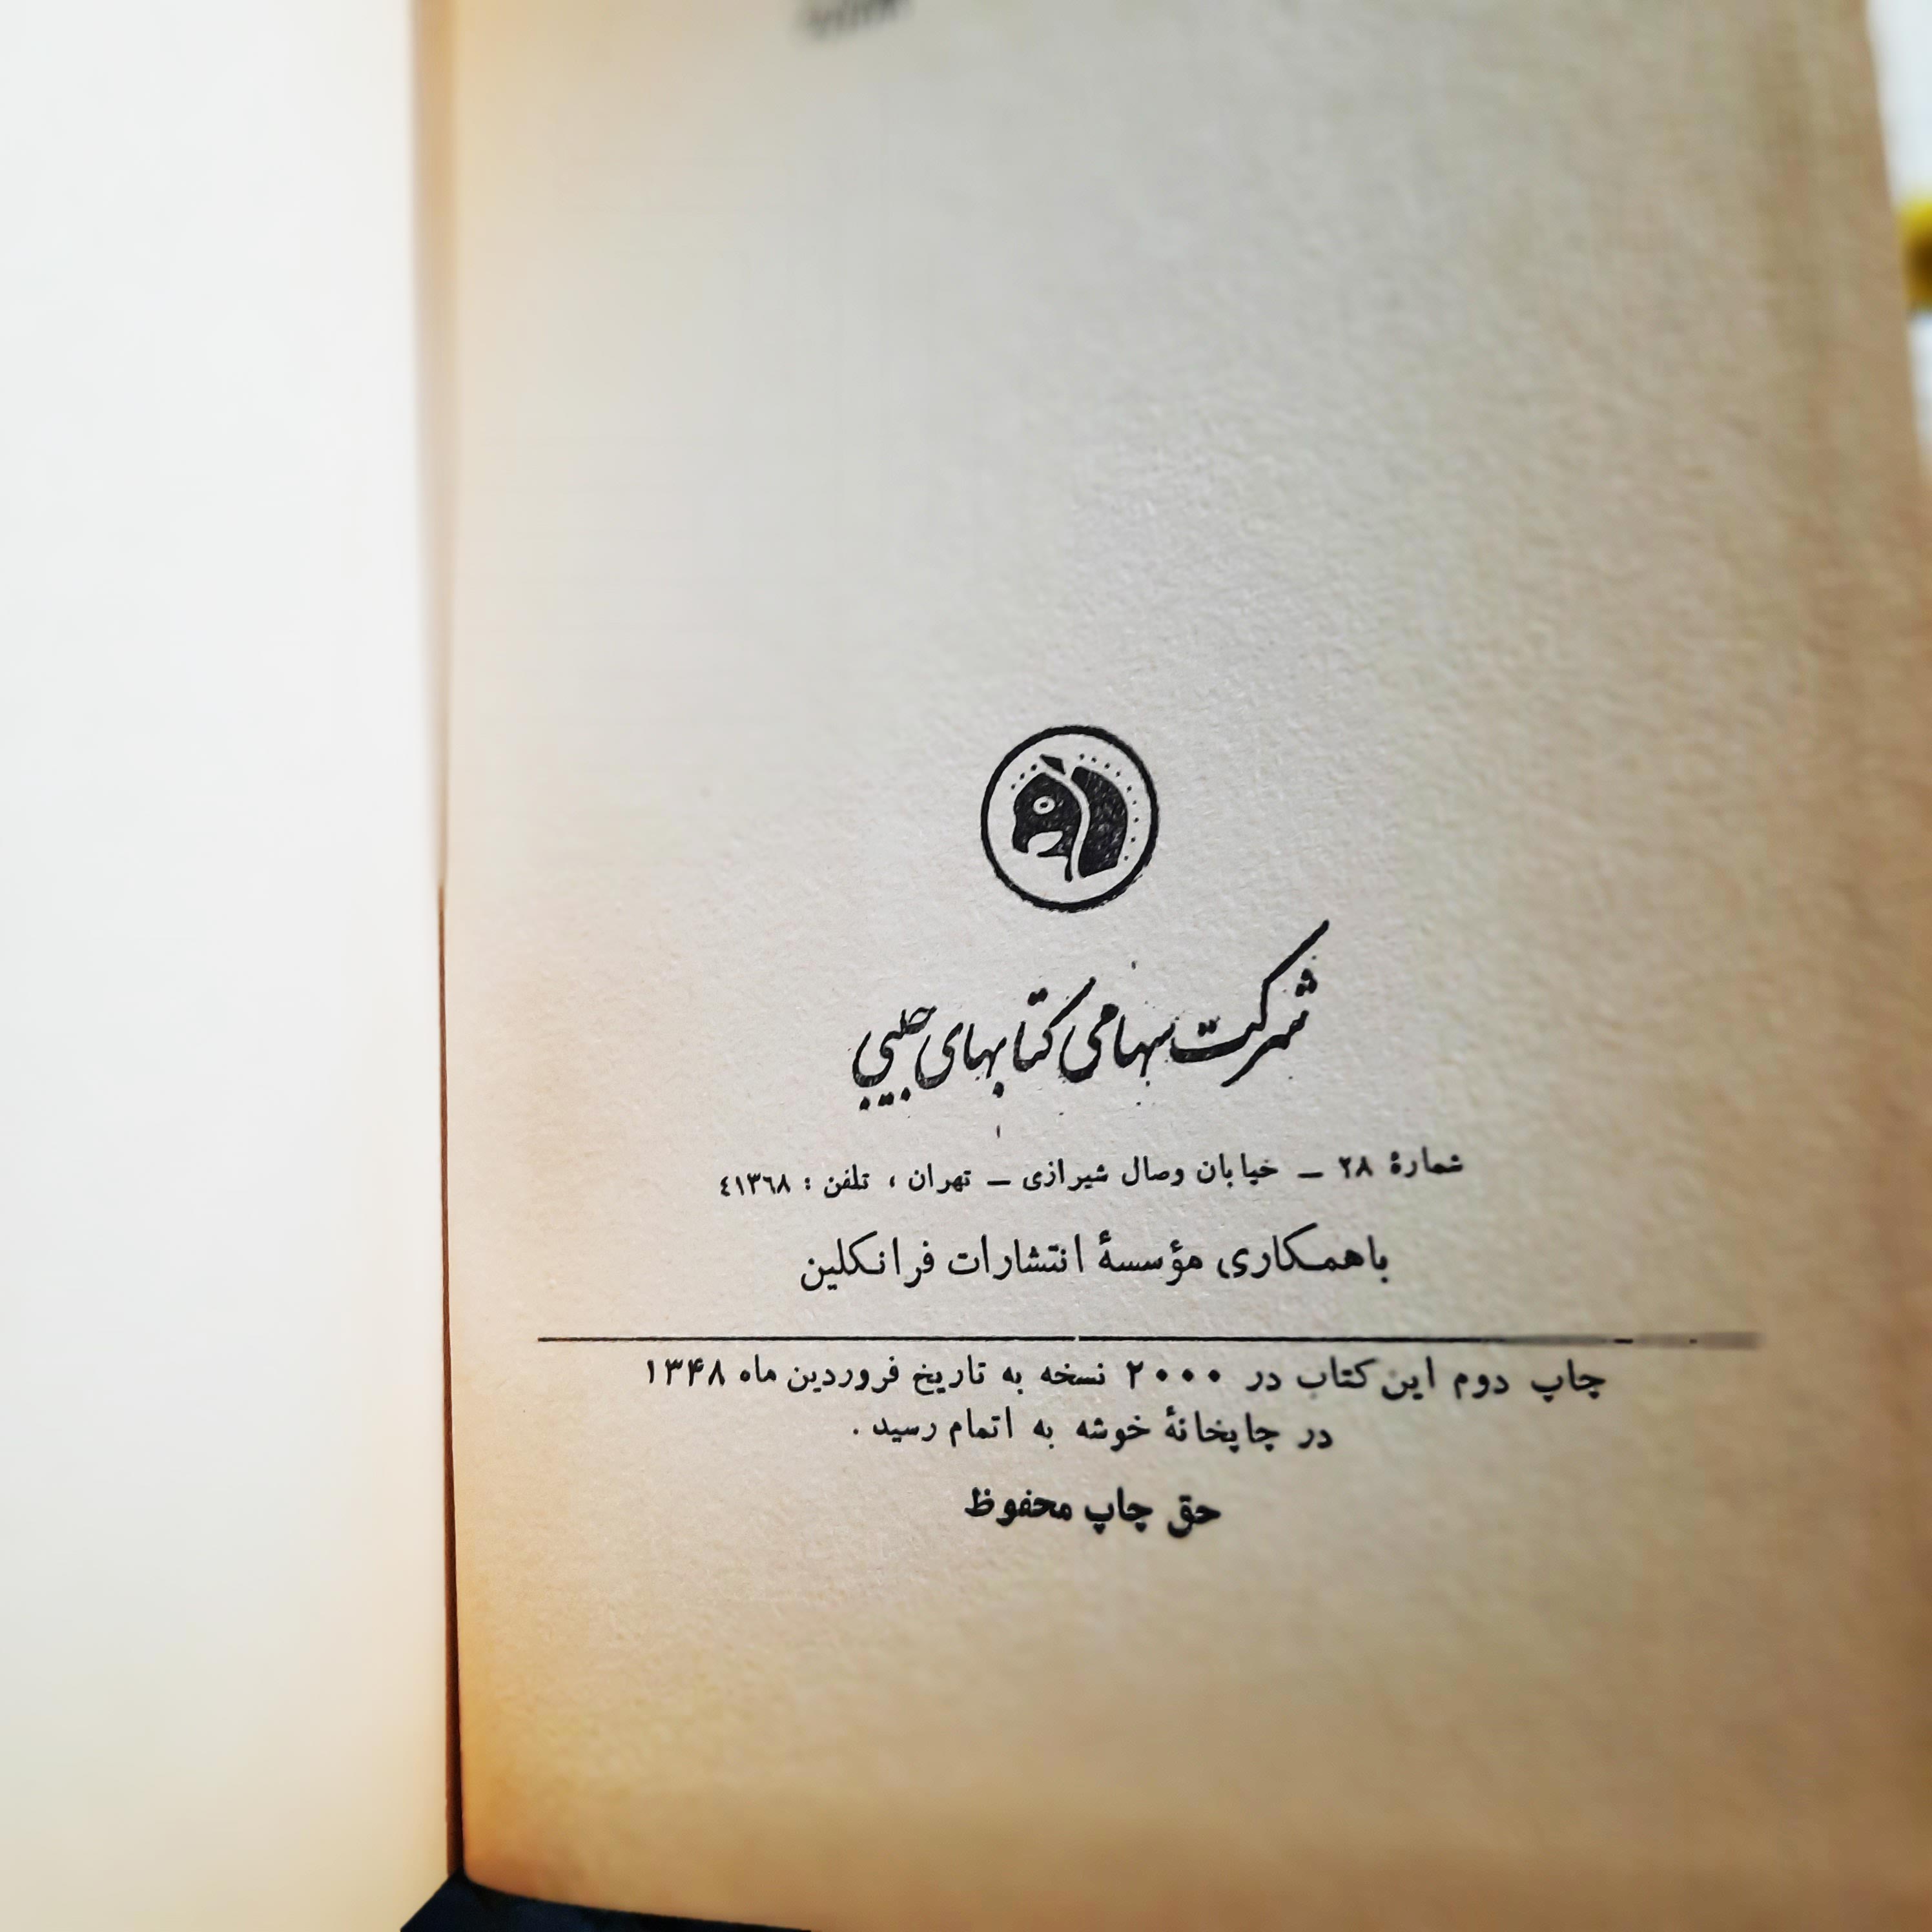 شرکت سهامی کتابهای جیبی
شمارهٔ ۲۸ ــ خیابان وصال شیرازی ــ تهران ، تلفن : ٤١٣٦٨
باهمکاری مؤسسهٔ انتشارات فرانکلین
چاپ دوم این کتاب در ۲۰۰۰ نسخه به تاریخ فروردین ماه ۱۳۴۸
در چاپخانهٔ خوشه به اتمام رسید .
حق چاپ محفوظ